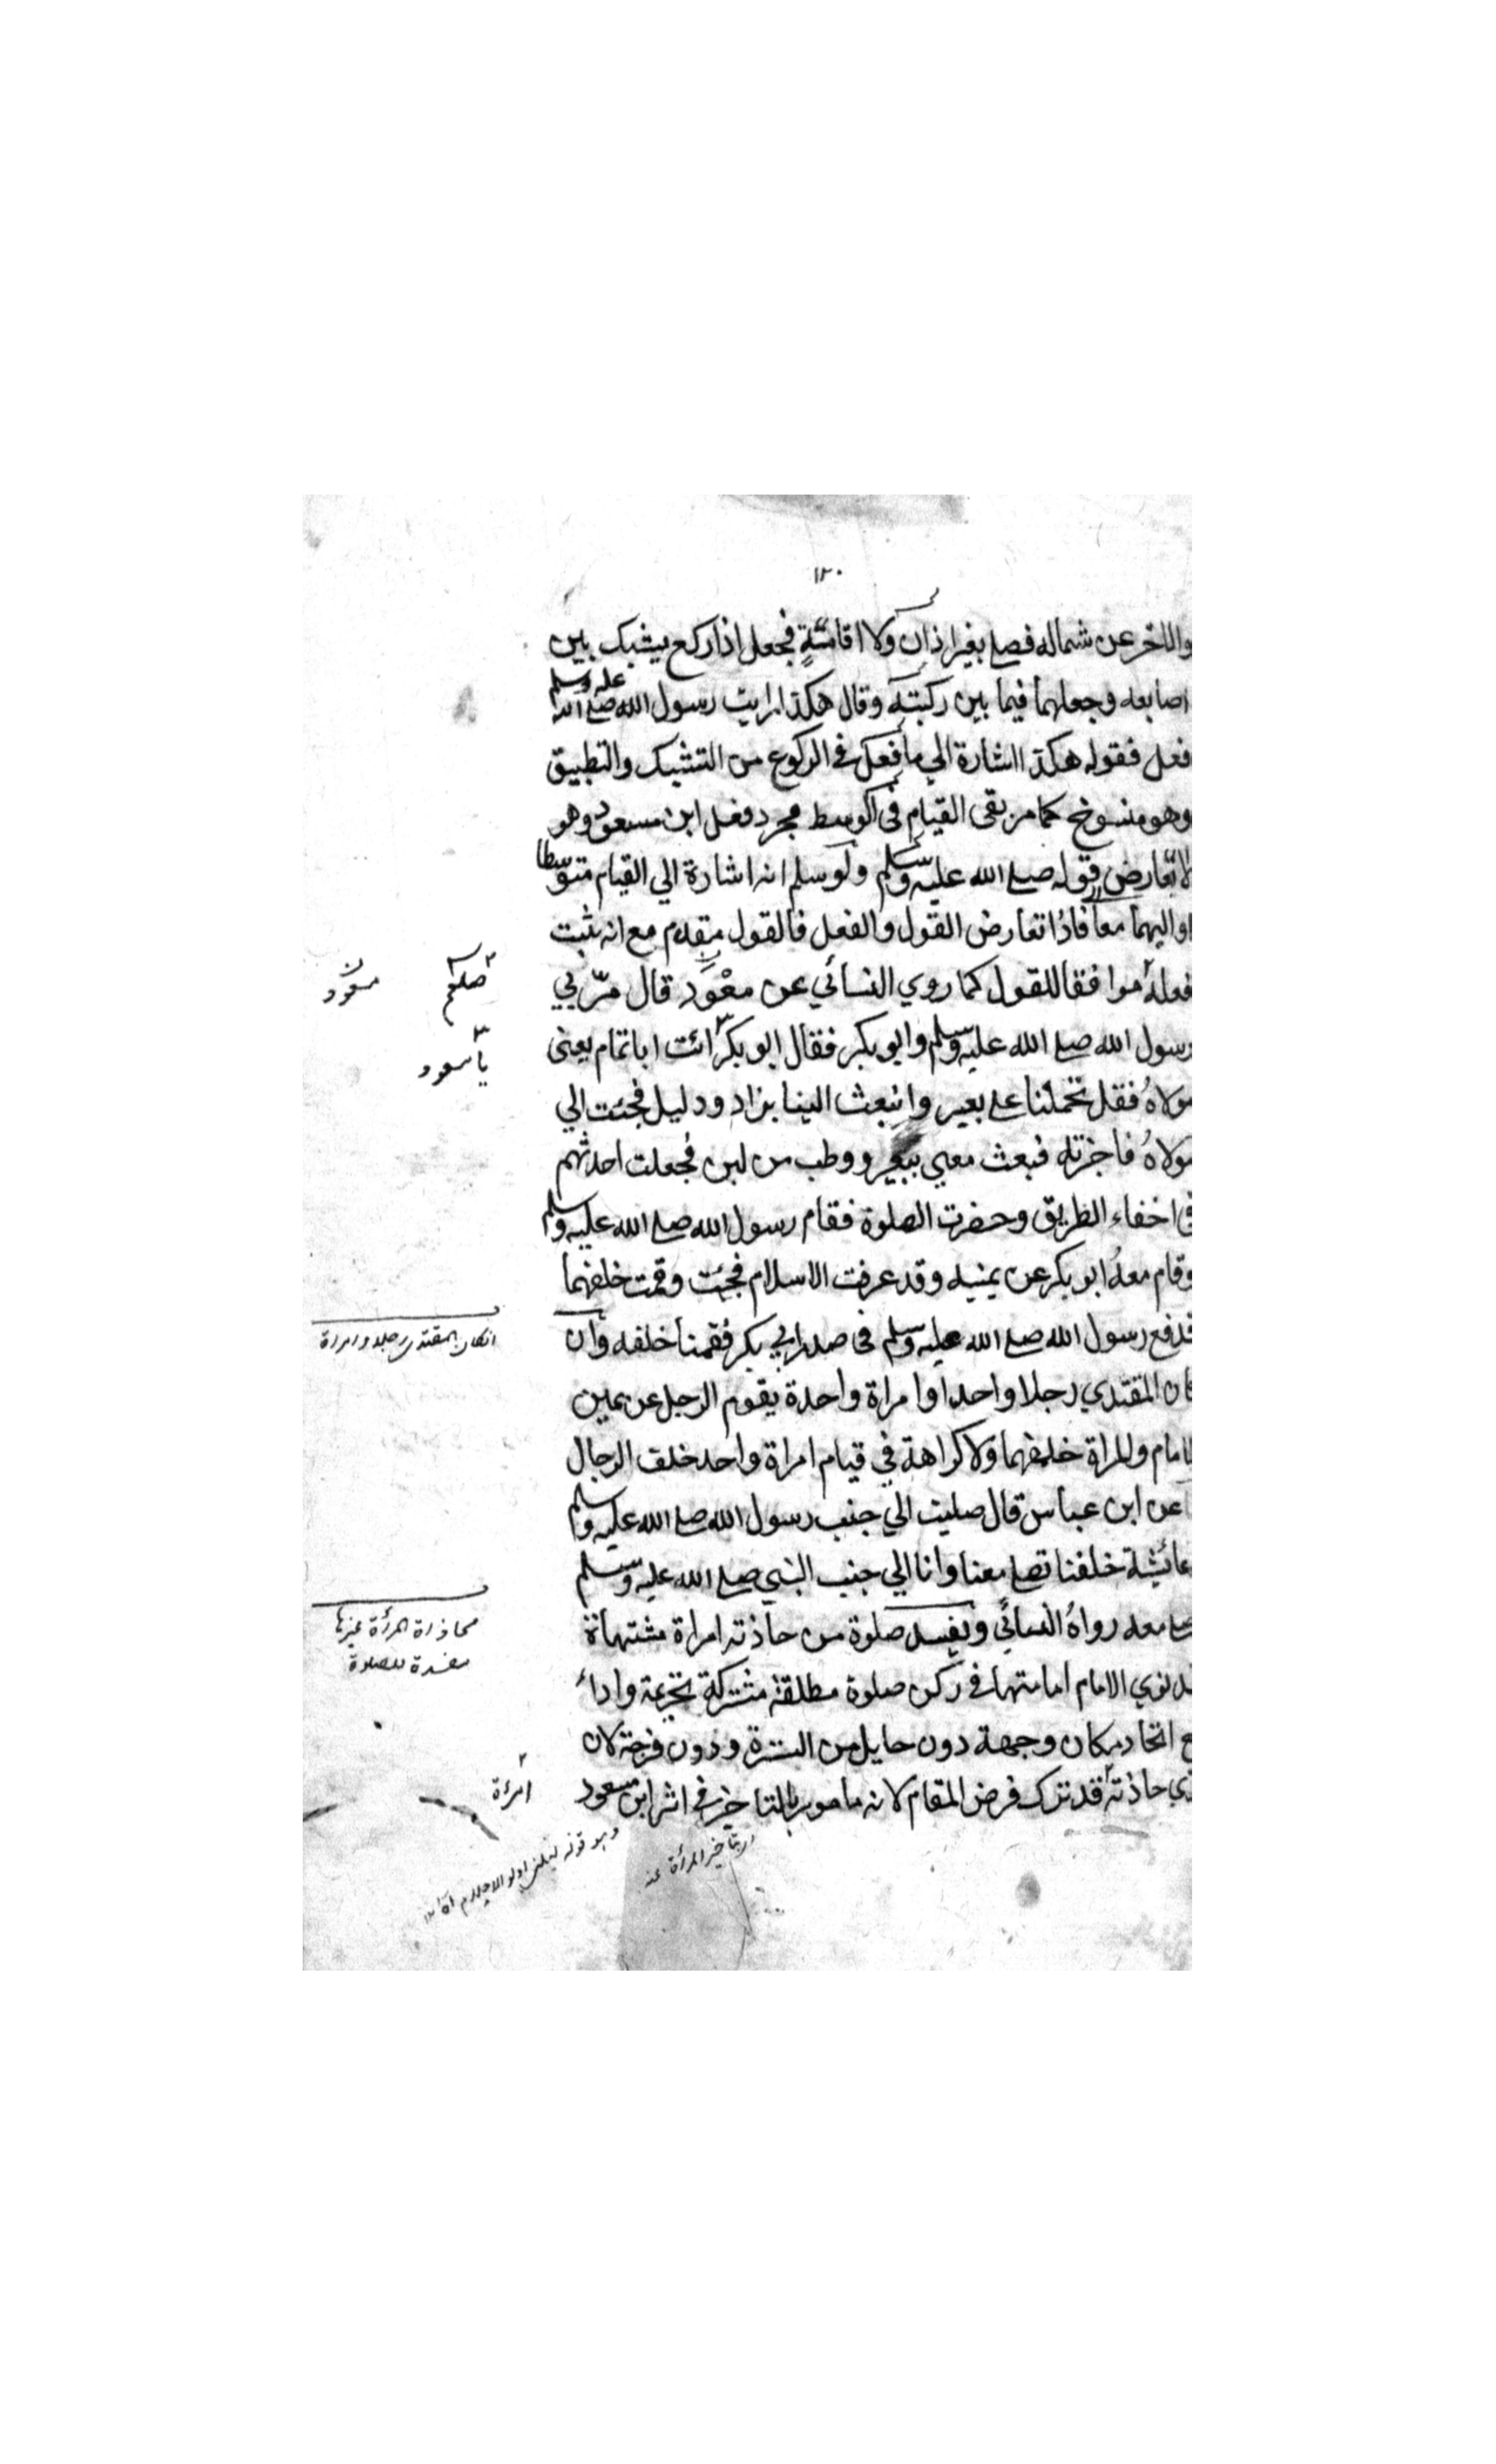 ١٣٠
والاخر عن شماله فصلى بغير اذان ولا اقامة فجعل اذا ركع يشبك بين
اصابعه وجعلهما فيما بين ركبتيه وقال هكذا رايت رسول الله صلى الله عليه وسلم
فعل فقوله هكذا اشارة الي ما فعل في الركوع من التشبيك والتطبيق
وهو منسوخ كما مر بقى القيام في الوسط مجرد فعل ابن مسعود وهو
لا يعارض قوله صلى الله عليه وسلم ولو سلم انه اشارة الي القيام متوسطا
او اليهما معا فاذا تعارض القول والفعل فالقول مقدم مع انه ثبت
فعله موافقا للقول كما روي النسائي عن معوَد قال مرّ بي
رسول الله صلى الله عليه وسلم وابو بكر فقال ابو بكر ائت ابا تمام يعني
مولاهُ فقل تحملنا على بعير وانبعث الينا بزاد ودليل فجئت الي
مولاهُ فاخبرته فبعث معي ببعير ووطب من لبن فجعلت احدثهم
في اخفاء الطريق وحضرت الصلوة فقام رسول الله صلى الله عليه وسلم
وقام معهُ ابو بكر عن يمنيه وقد عرفت الاسلام فجئت وقمت خلفهما
فدفع رسول الله صلى الله عليه وسلم في صدر ابي بكر فقمنا خلفه وان
كان المقتدي رجلا واحدا وامراة واحدة يقوم الرجل عن يمين
الامام والمراة خلفهما ولا كراهة في قيام امراة واحد خلف الرجال
عن ابن عباس قال صليت الي جنب رسول الله صلى الله عليه وسلم
عائشة خلفنا تصلى معنا وانا الي جنب النبي صلى الله عليه وسلم
صلى معه رواهُ النسائي ويفسد صلوة من حاذته امراة مشتهاة
قد نوي الامام امامتها في ركن صلوة مطلقة مشتركة تحريمة واداءً
مع اتحاد مكان وجهة دون حايل من السترة ودون فرجة لان
الذي حاذته قد ترك فرض المقام لانه مامور بالتاخير في اثر ابن مسعود
صلعم
مسعود
يا مسعود
ان كان المقتدى رجلا وامراة
محاذاة المرأة غيرها
مفسدة للصلوة
امرأة
اى بتاخير المرأة عنه
وهو قوله ليلنى اولو الاحلام